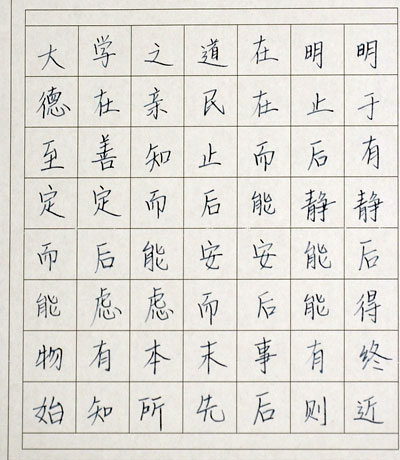 大学之道在明明
德在亲民在止于
至善知止而后有
定定而后能静静
而后能安安能后
能虑虑而后能得
物有本末事有终
始知所先后则近